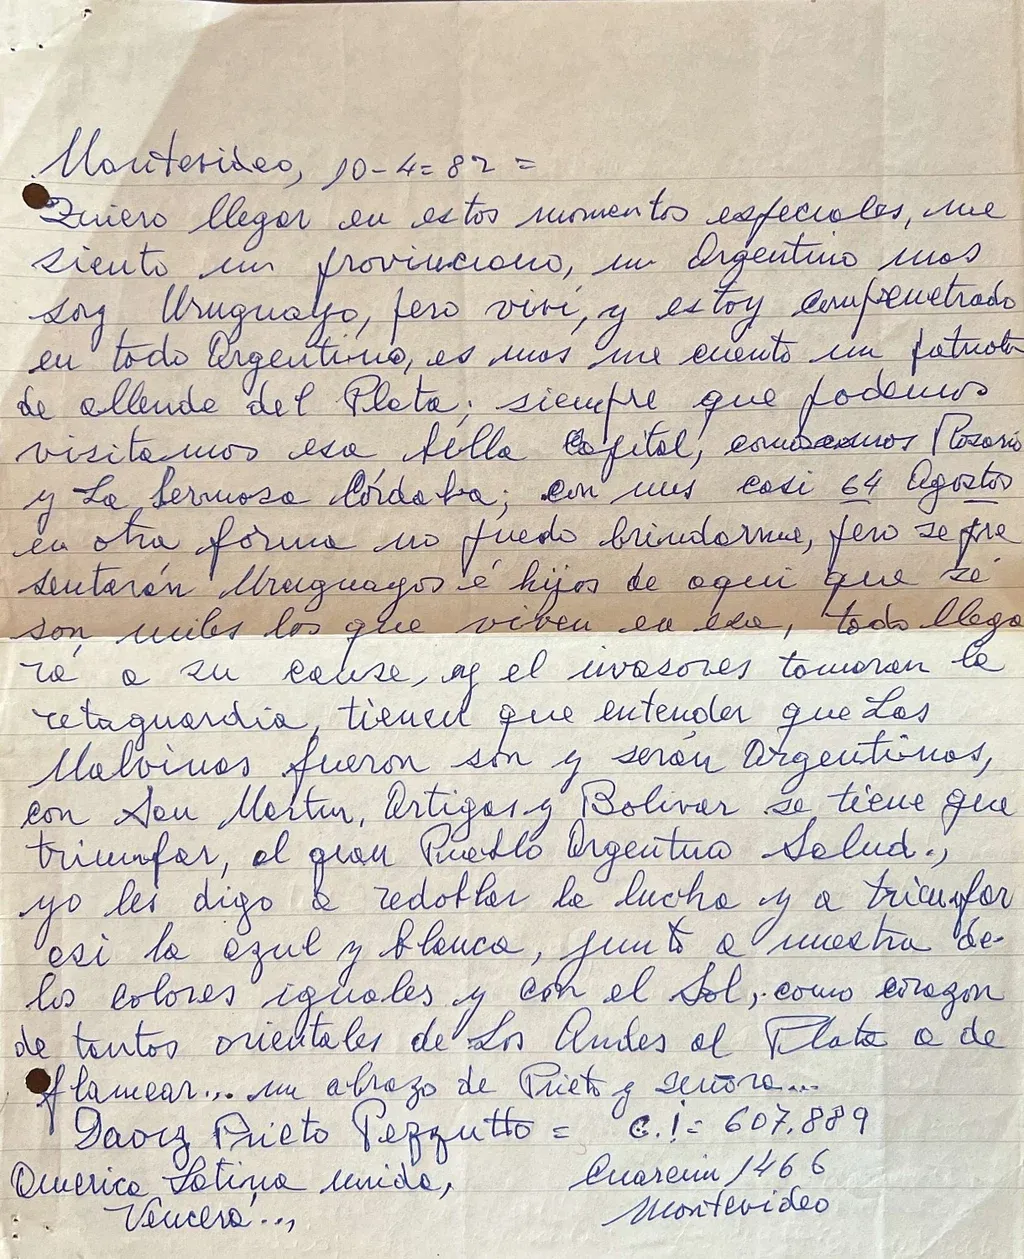 Montevideo, 10-4=82=
Quiero llegar en estos momentos especiales, me
siento un provinciano, un Argentino mas
soy Uruguayo, pero viví, y estoy compenetrado
en todo Argentino, es mas me cuento un patriota
de allende del Plata; siempre que podemos
visitamos esa bella Capital, como Rosario
y La hermosa Córdoba; con mis casi 64 Agostos
en otra forma no puedo brindarme, pero se pre
sentarán Uruguayos é hijos de aqui que sé
són miles los que viven en esa, todo llega
rá a su cause, y el invasores tomaran la
retaguardia, tienen que entender que Las
Malvinas fueron són y serán Argentinas,
con San Martin, Artigas y Bolivar se tiene que
triunfar, al gran Pueblo Argentino Salud.,
yo les digo a redoblar la lucha y a triunfar
asi la azul y blanca, junto a nuestra de
los colores iguales y con el Sol, como corazon
de tantos orientales de Los Andes al Plata a de
flamear... un abrazo de Prieto y señora...
Prieto Pezzutto = C.I= 607.889
America Latina unida, Cuareim 1466
Vencerá..., Montevideo